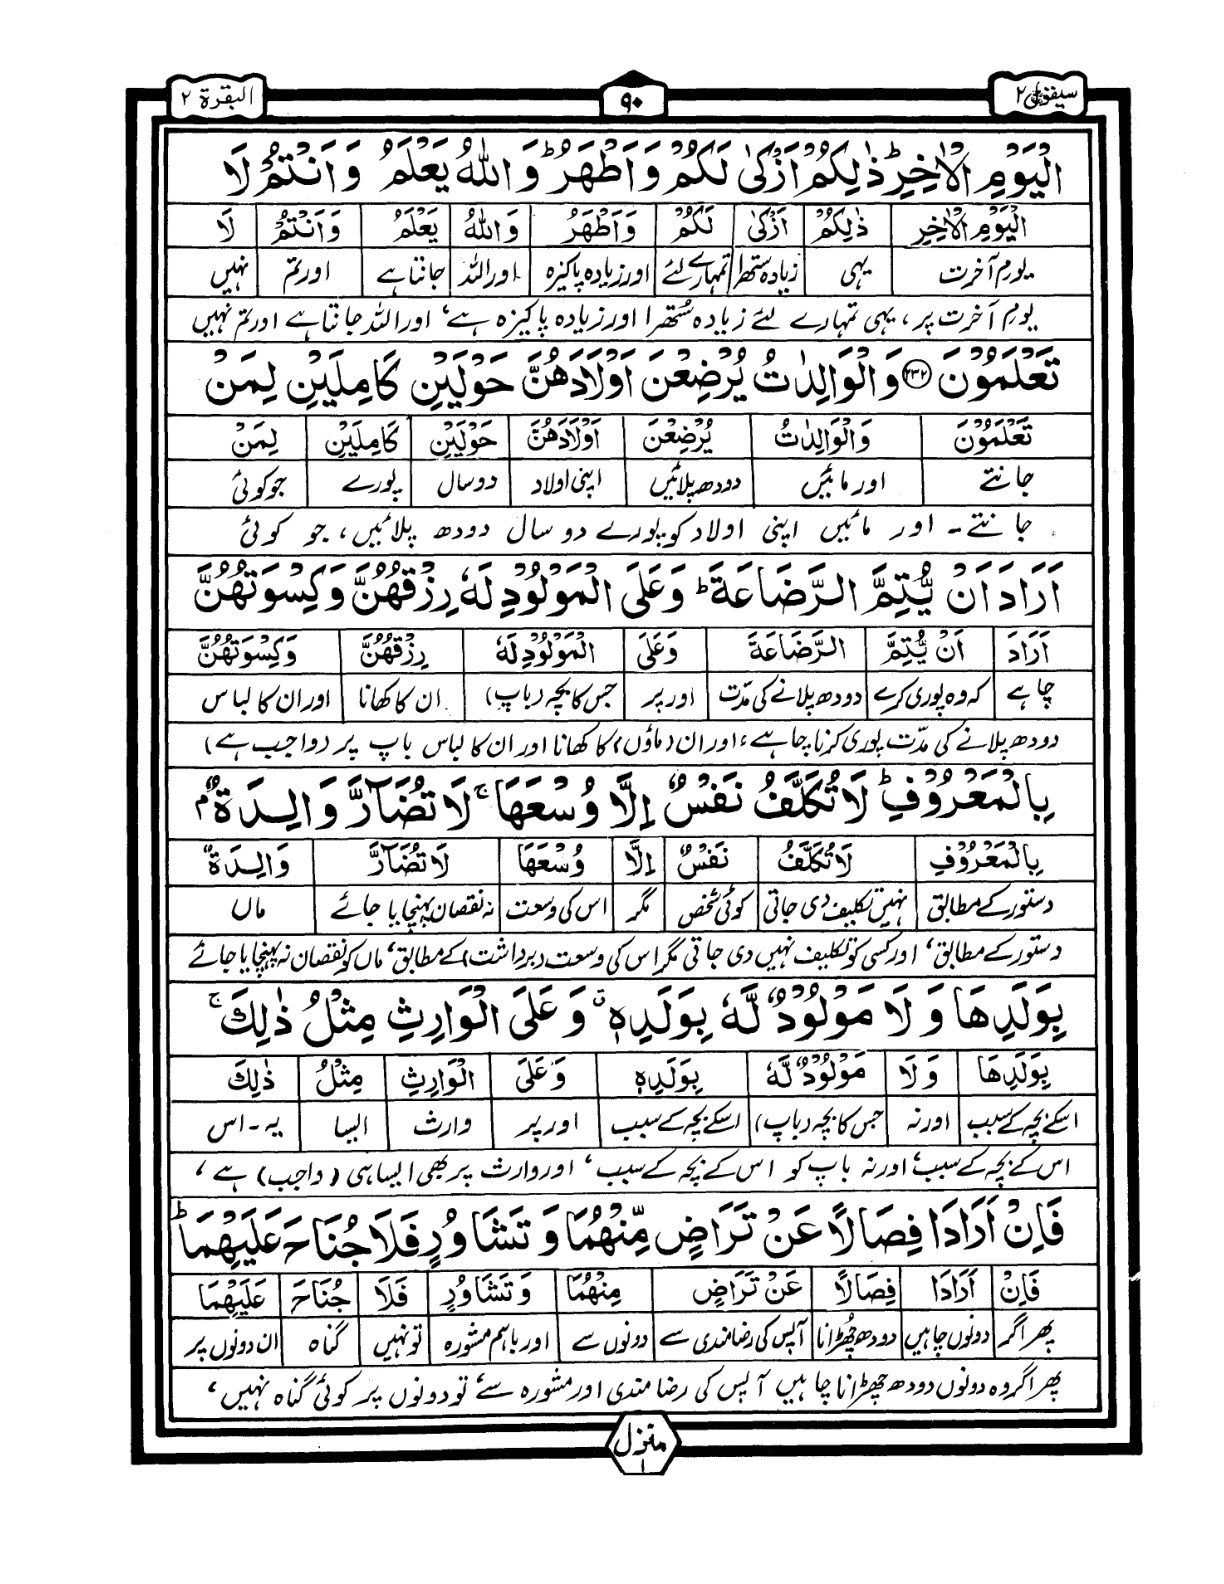 البقرة ٢
٩٠
سيقول ٢
الْيَوْمِ الْاٰخِرِ ؕ ذٰلِكُمْ اَزْكٰى لَكُمْ وَاَطْهَرُ ؕ وَاللّٰهُ يَعْلَمُ وَاَنْتُمْ لَا
الْيَوْمِ الْاٰخِرِ ذٰلِكُمْ اَزْكٰى لَكُمْ وَاَطْهَرُ وَاللّٰهُ يَعْلَمُ وَاَنْتُمْ لَا
یوم آخرت یہی زیادہ ستھرا تمہارے لئے اور زیادہ پاکیزہ اور اللہ جانتا ہے اور تم نہیں
یوم آخرت پر، یہی تمہارے لئے زیادہ ستھرا اور زیادہ پاکیزہ ہے، اور اللہ جانتا ہے اور تم نہیں
تَعْلَمُوْنَ ۝۲۳۲ وَالْوَالِدٰتُ يُرْضِعْنَ اَوْلَادَهُنَّ حَوْلَيْنِ كَامِلَيْنِ لِمَنْ
تَعْلَمُوْنَ وَالْوَالِدٰتُ يُرْضِعْنَ اَوْلَادَهُنَّ حَوْلَيْنِ كَامِلَيْنِ لِمَنْ
جانتے اور مائیں دودھ پلائیں اپنی اولاد دو سال پورے جو کوئی
جانتے۔ اور مائیں اپنی اولاد کو پورے دو سال دودھ پلائیں، جو کوئی
اَرَادَ اَنْ يُّتِمَّ الرَّضَاعَةَ ؕ وَعَلَى الْمَوْلُوْدِ لَهٗ رِزْقُهُنَّ وَكِسْوَتُهُنَّ
اَرَادَ اَنْ يُّتِمَّ الرَّضَاعَةَ وَعَلَى الْمَوْلُوْدِ لَهٗ رِزْقُهُنَّ وَكِسْوَتُهُنَّ
چاہے کہ وہ پوری کرے دودھ پلانے کی مدّت اور پر جس کا بچہ (باپ) ان کا کھانا اور ان کا لباس
دودھ پلانے کی مدّت پوری کرنا چاہے، اور ان (ماؤں) کا کھانا اور ان کا لباس باپ پر (واجب ہے)
بِالْمَعْرُوْفِ ؕ لَا تُكَلَّفُ نَفْسٌ اِلَّا وُسْعَهَا ۚ لَا تُضَآرَّ وَالِدَةٌۢ
بِالْمَعْرُوْفِ لَا تُكَلَّفُ نَفْسٌ اِلَّا وُسْعَهَا لَا تُضَآرَّ وَالِدَةٌ
دستور کے مطابق نہیں تکلیف دی جاتی کوئی شخص مگر اس کی وسعت نہ نقصان پہنچایا جائے ماں
دستور کے مطابق، اور کسی کو تکلیف نہیں دی جاتی مگر اس کی وسعت (برداشت) کے مطابق، ماں کو نقصان نہ پہنچایا جائے
بِوَلَدِهَا وَلَا مَوْلُوْدٌ لَّهٗ بِوَلَدِهٖ ۗ وَعَلَى الْوَارِثِ مِثْلُ ذٰلِكَ ۚ
بِوَلَدِهَا وَلَا مَوْلُوْدٌ لَّهٗ بِوَلَدِهٖ وَعَلَى الْوَارِثِ مِثْلُ ذٰلِكَ
اسکے بچہ کے سبب اور نہ جس کا بچہ (باپ) اسکے بچہ کے سبب اور پر وارث ایسا یہ۔اس
اس کے بچہ کے سبب، اور نہ باپ کو اس کے بچہ کے سبب، اور وارث پر بھی ایسا ہی (واجب) ہے،
فَاِنْ اَرَادَا فِصَالًا عَنْ تَرَاضٍ مِّنْهُمَا وَتَشَاوُرٍ فَلَا جُنَاحَ عَلَيْهِمَا ؕ
فَاِنْ اَرَادَا فِصَالًا عَنْ تَرَاضٍ مِنْهُمَا وَتَشَاوُرٍ فَلَا جُنَاحَ عَلَيْهِمَا
پھر اگر دونوں چاہیں دودھ چھڑانا آپس کی رضامندی سے دونوں سے اور باہم مشورہ تو نہیں گناہ ان دونوں پر
پھر اگر وہ دونوں دودھ چھڑانا چاہیں آپس کی رضا مندی اور مشورہ سے تو دونوں پر کوئی گناہ نہیں،
منزل
١